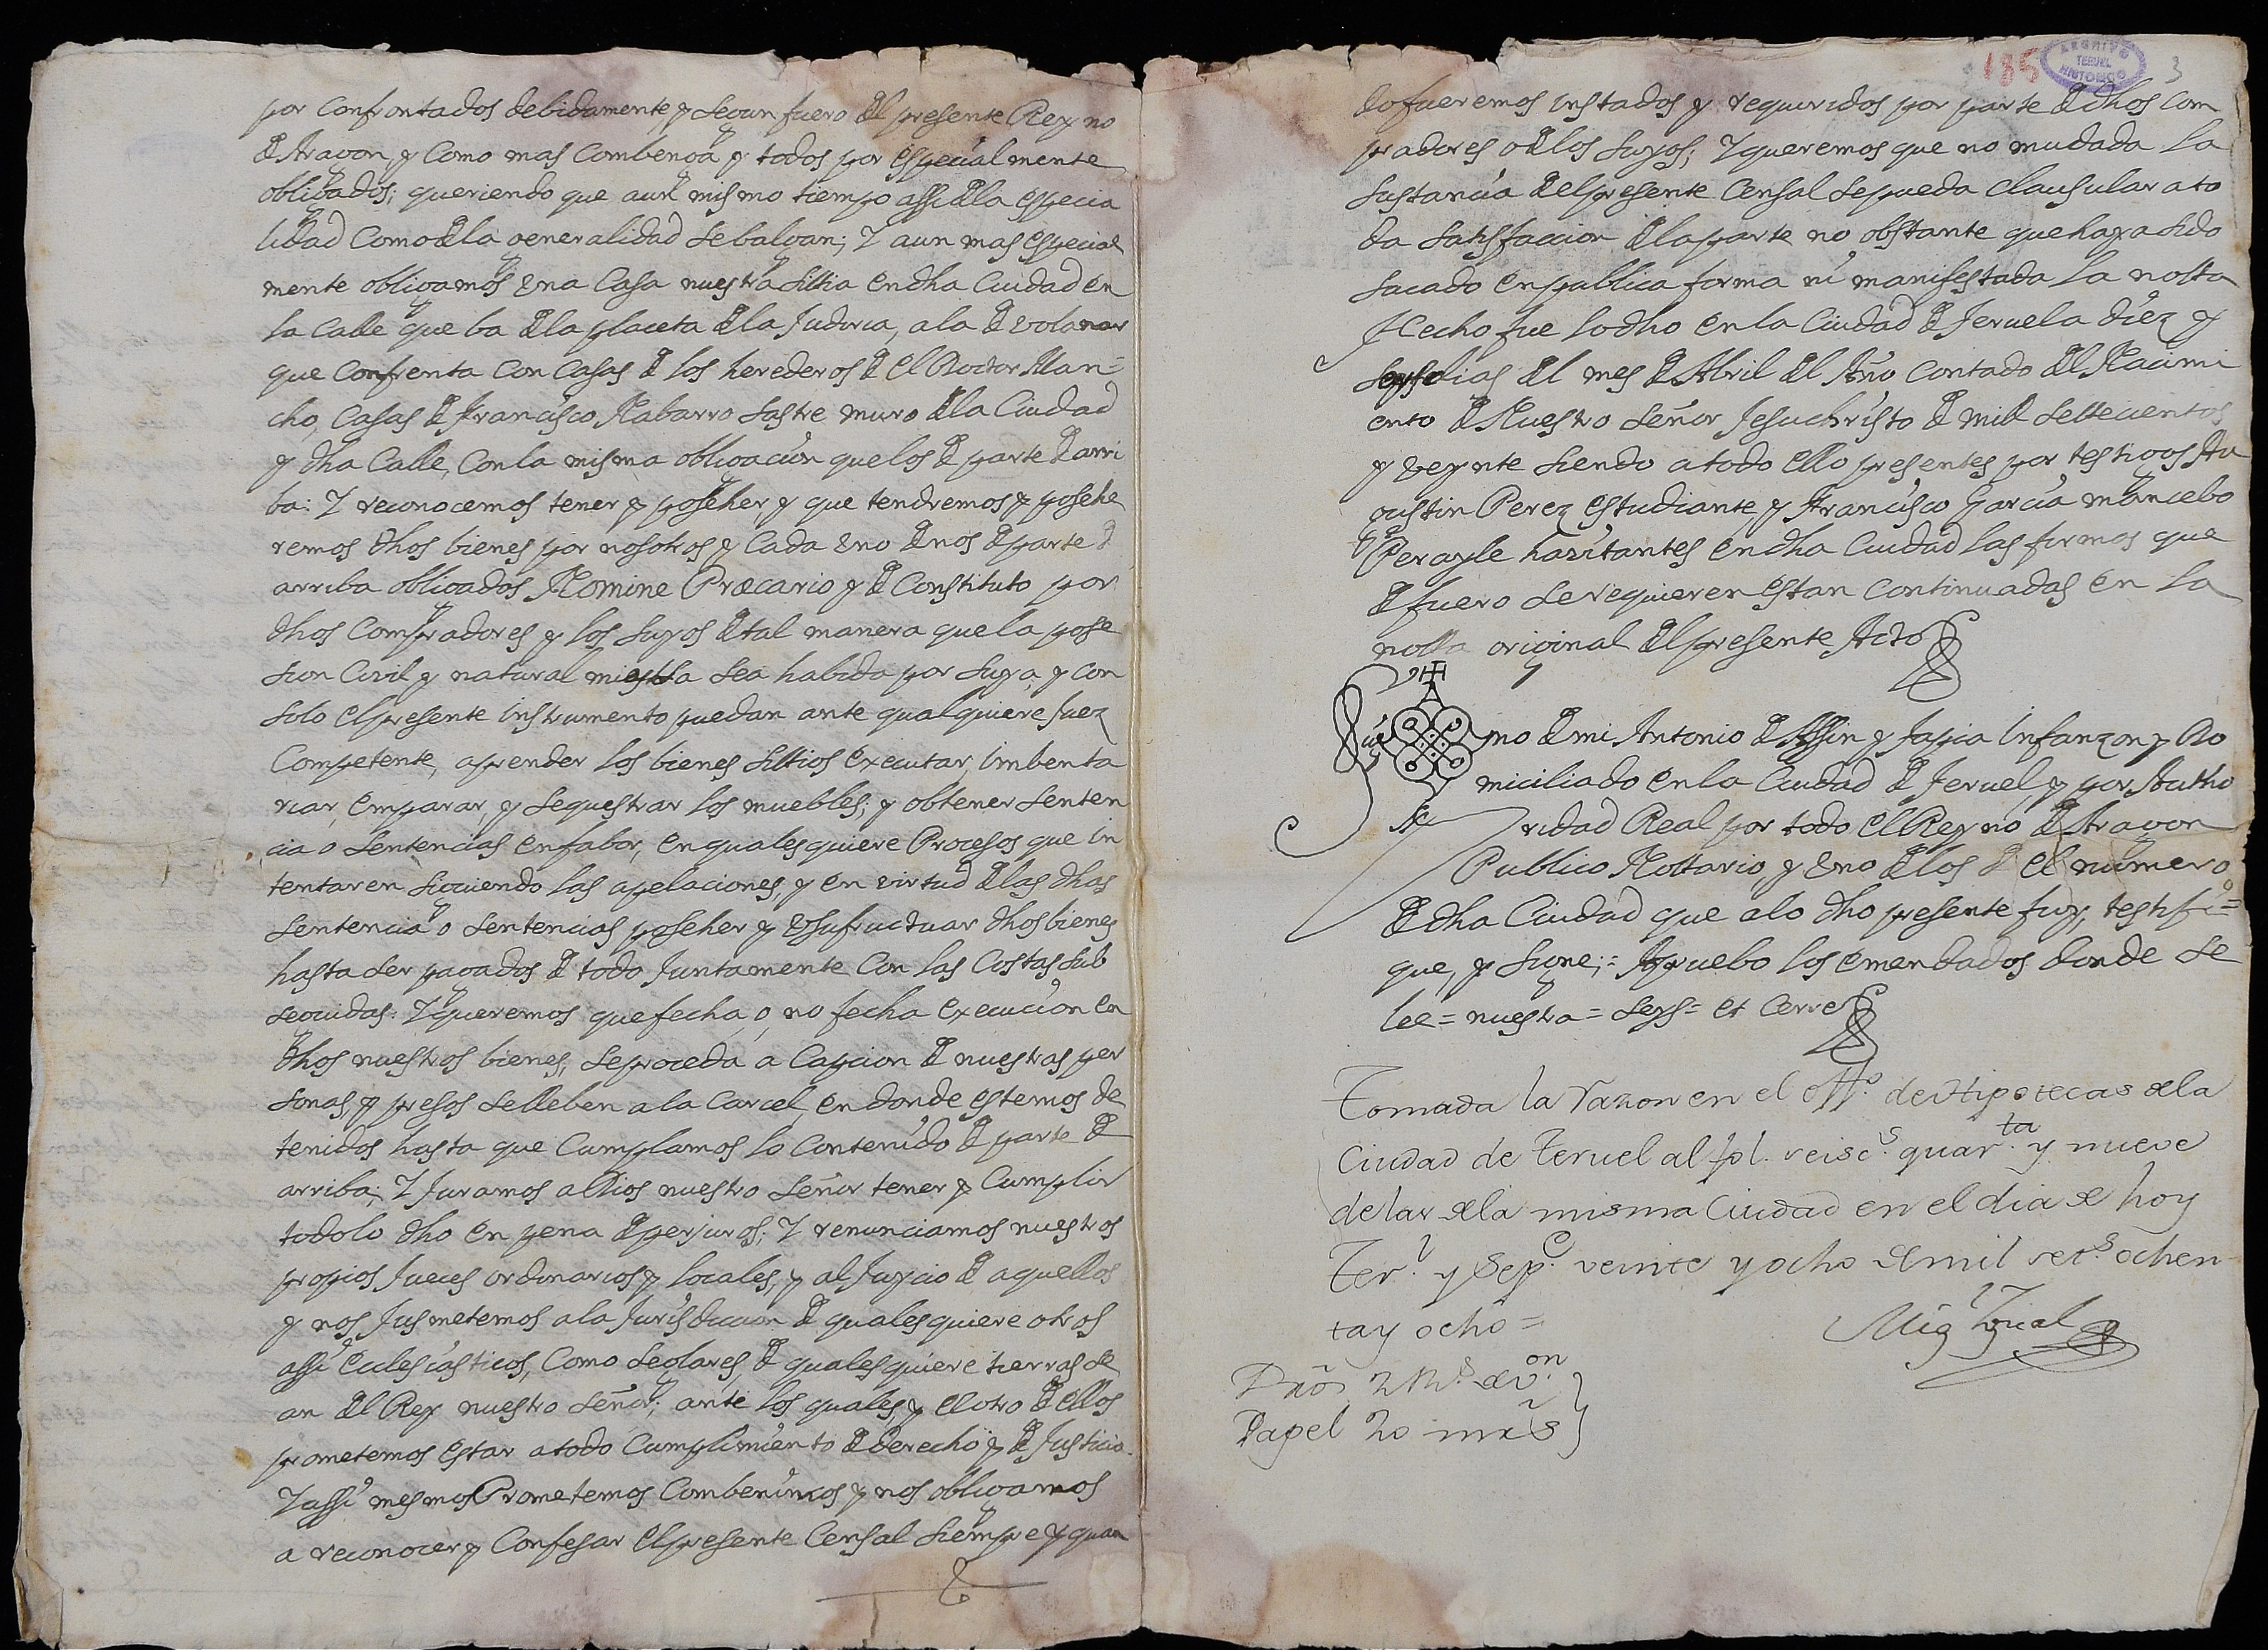 por Confrontados debidamente, y Segun fuero del presente Reyno
de Aragon, y Como mas Combenga y todos por especialmente
obligados; queriendo que aun mismo tiempo assi dela especia
lidad Como dela generalidad se balgan; Y aun mas especial
mente obligamos una Casa nuestra sittia en dha Ciudad en
la Calle que ba dela placeta dela Juderia, ala de
que Confrenta Con Casas de los herederos de el Doctor Man=
cho, Casas de Francisco Nabarro sastre muro dela Ciudad
y dha Calle, Con la misma obligacion que los de parte de arri
ba: Y reconocemos tener y posseher, y que tendremos y posehe
remos dhos bienes por nosotros y Cada uno de nos de parte de
arriba obligados Nomine Præcario y de Constituto por
dhos Compradores y los suyos de tal manera que la pose
sion Civil y natural nuestra sea habida por suya, y con
solo el presente instrumento puedan ante qualquiere Juez
Competente, aprender los bienes sittios executar, imbenta
riar, emparar, y sequestrar los muebles; y obtener senten
cia o sentencias en fabor, en qualesquiere Procesos que in
tentaren siguiendo las apelaciones, y en virtud de las dhas
sentencia o sentencias poseher y usufructuar dhos bienes
hasta ser pagados de todo Juntamente Con las Costas sub
seguidas: Y queremos que fecha, o, no fecha execucion en
dhos nuestros bienes, se proceda a Capcion de nuestras per
sonas, y presos se lleben a la Carcel, en donde estemos de
tenidos hasta que Cumplamos lo Contenido de parte de
arriba; Y Juramos a Dios nuestro Señor tener y Cumplir
todo lo dho en pena de perjuros; Y renunciamos nuestros
propios Jueces ordinarios y locales, y al Juycio de aquellos
y nos Jusmetemos a la Jurisdiccion de qualesquiere otros
assi eclesiasticos, Como seglares, de qualesquiere tierras se
an del Rey nuestro Señor; ante los quales, y el otro de ellos
prometemos estar a todo Cumplimiento de derecho y de Justicia.
Y assi mesmo Prometemos Combenimos y nos obligamos
a reconocer y Confesar el presente Censal siempre y quan
185 3
ARCHIVO
TERUEL
HISTORICO
do fueremos instados y requeridos por parte de dhos Com
pradores o de los suyos; Y queremos que no mudada la
sustancia del presente Censal se pueda clausular a to
da satisfaccion de la parte no obstante que haya sido
sacado en publica forma ni manifestada la notta
Hecho fue lo dho en la Ciudad de Teruel a diez y
seys dias del mes de Abril del Año Contado del Nacimi
ento de Nuestro Señor Jesuchristo de mil Settecientos
y veynte siendo a todo ello presentes por testigos Au
gustin Perez estudiante, y Francisco Garcia mancebo
Perayle havitantes en dha Ciudad las firmas que
de fuero se requieren estan Continuadas en la
notta original del presente Acto
Sig no de mi Antonio de Assin y Tapia Infanzon y Do
miciliado en la Ciudad de Teruel, y por Autho
ridad Real por todo el Reyno de Aragon
Publico Nottario, y uno de los de el numero
de dha Ciudad que a lo dho presente fuy, testifi=
que, y signe;= Apruebo los emendados donde se
lee = nuestra = seys = et Cerre
Tomada la razon en el off.º de Hipotecas de la
Ciudad de Teruel al fol. seisc.s quar.ta y nueve
de la de la misma Ciudad en el dia de hoy
Ter.l y Sep.e veinte y ocho de mil set.s ochen
ta y ocho =
Mig.l
Dros 2 Rs. de v.on
Papel 20 mrs